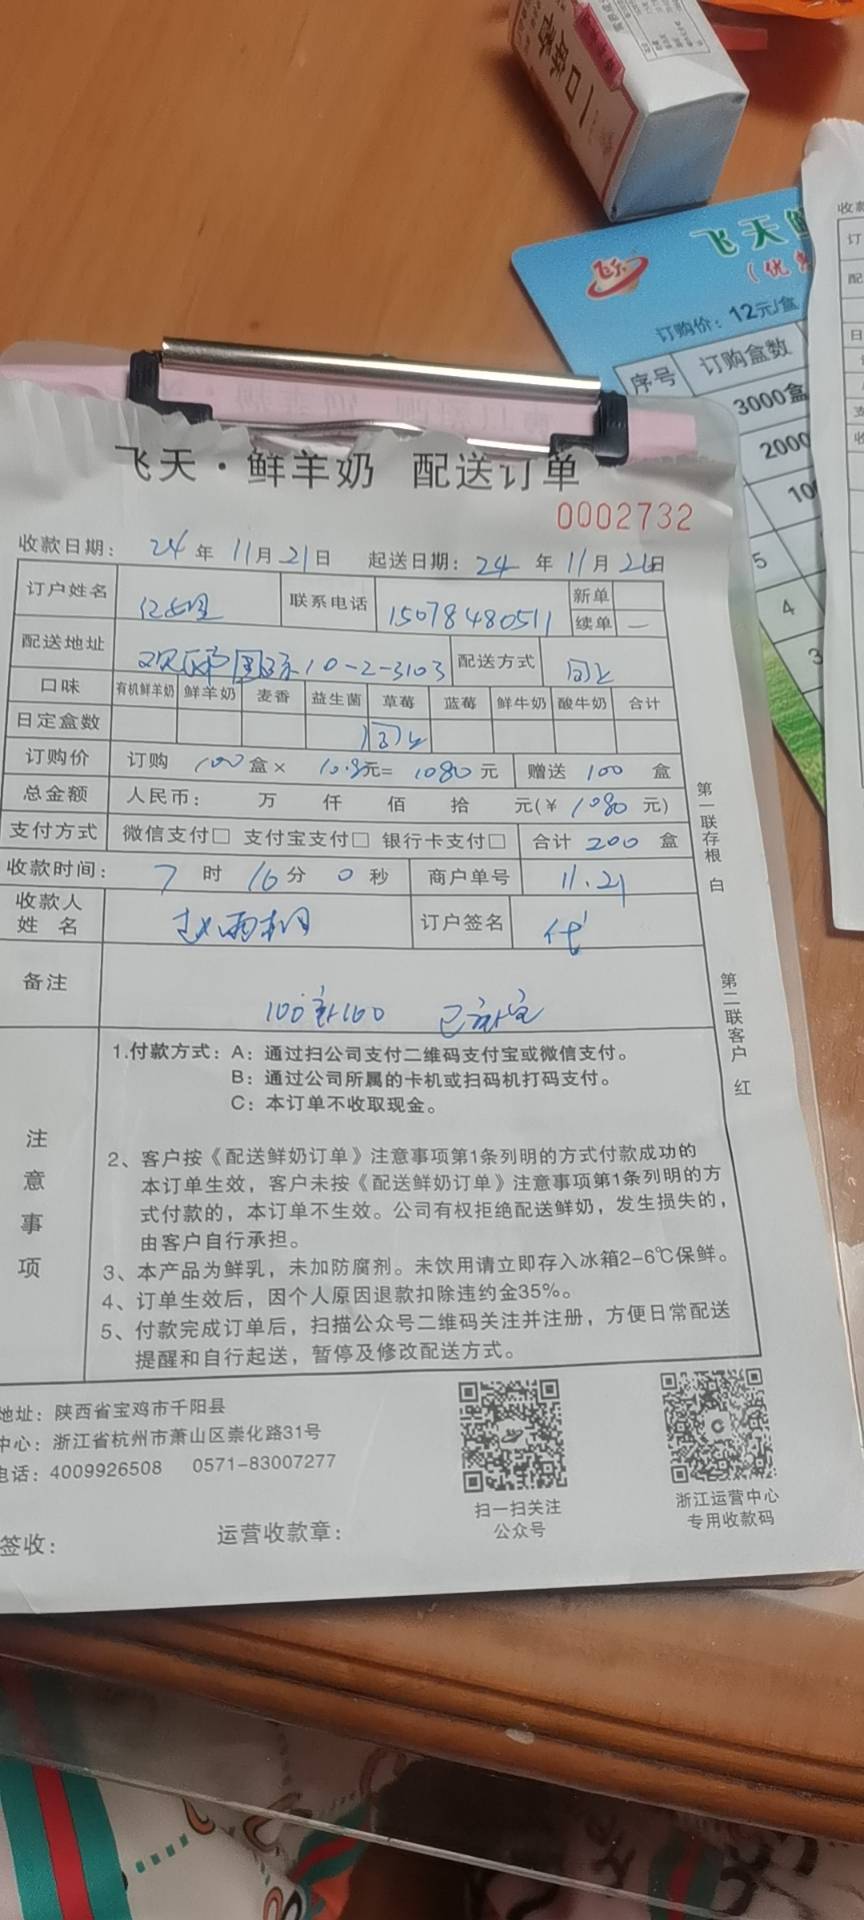 一口
飞天
(优
订购价：12元/盒
序号 订购盒数
3000盒
2000
5
4
3
飞天·鲜羊奶 配送订单
0002732
收款日期： 24 年 11月21日 起送日期： 24 年 11月
订户姓名 联系电话 15078480511 新单
续单 一
配送地址 国际10-2-3103 配送方式 同上
口味 有机鲜羊奶 鲜羊奶 麦香 益生菌 草莓 蓝莓 鲜牛奶 酸牛奶 合计
日定盒数 同上
订购价 订购 100 盒× 10.8元= 1080 元 赠送 100 盒
总金额 人民币： 万 仟 佰 拾 元(¥ 1080 元)
支付方式 微信支付□ 支付宝支付□ 银行卡支付□ 合计 200 盒
收款时间： 7 时 16分 0 秒 商户单号 11.21
收款人 姓名 赵雨桐 订户签名 代
备注 100 100 已
第一联存根 白
第二联客户 红
注意事项
1.付款方式：A：通过扫公司支付二维码支付宝或微信支付。
B：通过公司所属的卡机或扫码机打码支付。
C：本订单不收取现金。
2、客户按《配送鲜奶订单》注意事项第1条列明的方式付款成功的
本订单生效，客户未按《配送鲜奶订单》注意事项第1条列明的方
式付款的，本订单不生效。公司有权拒绝配送鲜奶，发生损失的，
由客户自行承担。
3、本产品为鲜乳，未加防腐剂。未饮用请立即存入冰箱2-6℃保鲜。
4、订单生效后，因个人原因退款扣除违约金35%。
5、付款完成订单后，扫描公众号二维码关注并注册，方便日常配送
提醒和自行起送，暂停及修改配送方式。
地址：陕西省宝鸡市千阳县
中心：浙江省杭州市萧山区崇化路31号
电话：4009926508 0571-83007277
扫一扫关注
公众号
浙江运营中心
专用收款码
签收： 运营收款章：